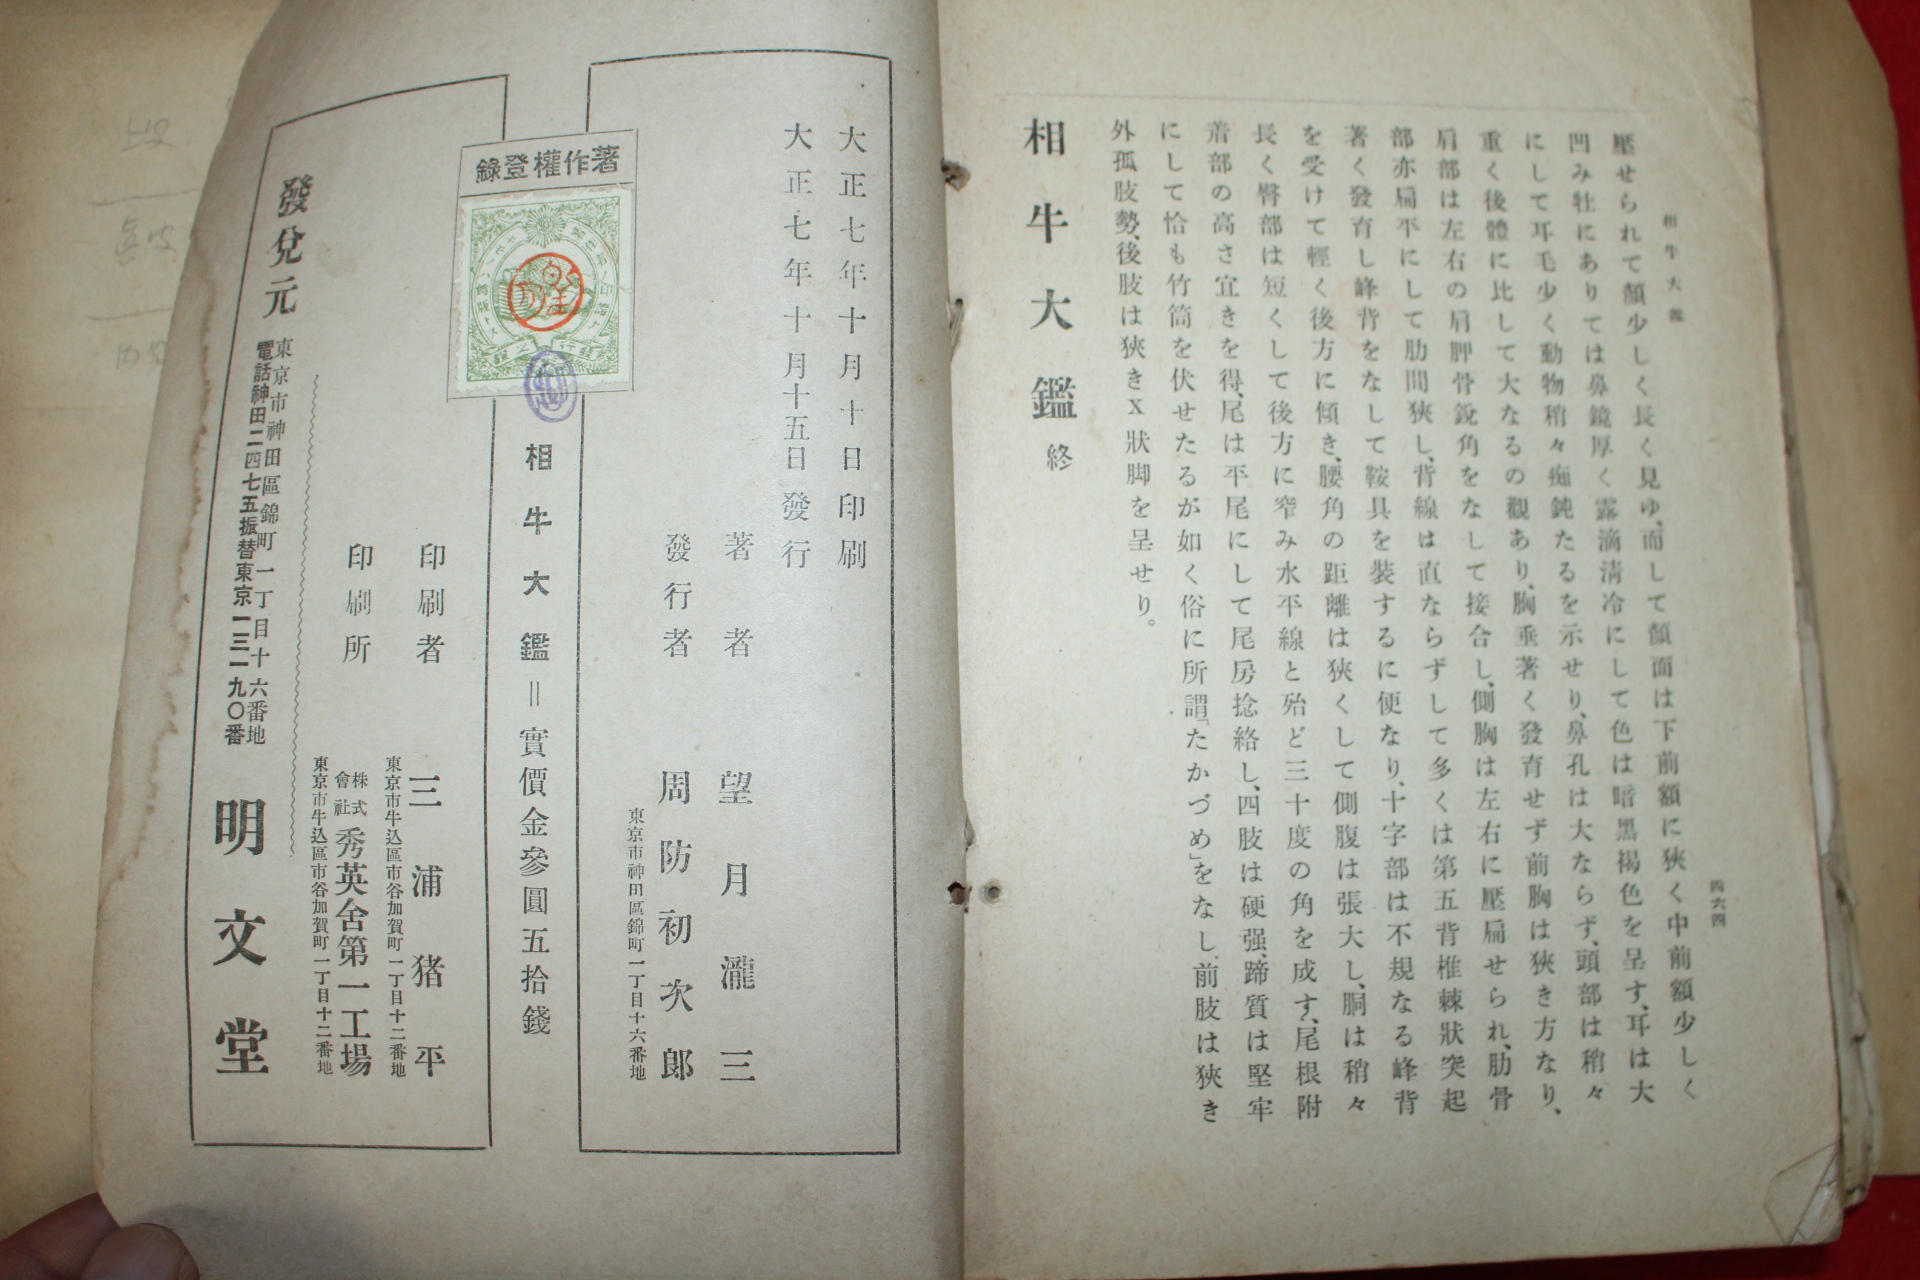 相牛大鑑
四六四
壓せられて顏少しく長く見ゆ、而して顏面は下前額に狹く中前額少しく
凹み牡にありては鼻鏡厚く露滴淸冷にして色は暗黑褐色を呈す、耳は大
にして耳毛少く動物稍々痴鈍たるを示せり、鼻孔は大ならず、頭部は稍々
重く後體に比して大なるの觀あり、胸垂著く發育せず前胸は狹き方なり、
肩部は左右の肩胛骨銳角をなして接合し、側胸は左右に壓扁せられ、肋骨
部亦扁平にして肋間狹し、背線は直ならずして多くは第五背椎棘狀突起
著く發育し峰背をなして鞍具を裝するに便なり、十字部は不規なる峰背
を受けて輕く後方に傾き、腰角の距離は狹くして側腹は張大し、胴は稍々
長く臀部は短くして後方に窄み水平線と殆ど三十度の角を成す、尾根附
着部の高さ宜きを得、尾は平尾にして尾房捻絡し、四肢は硬强、蹄質は堅牢
にして恰も竹筒を伏せたるが如く俗に所謂「たかづめ」をなし、前肢は狹き
外孤肢勢、後肢は狹きX狀脚を呈せり。
相牛大鑑 終
大正七年十月十日印刷
大正七年十月十五日發行
著者 望月瀧三
發行者 周防初次郞
東京市神田區錦町一丁目十六番地
著作權登錄
相牛大鑑＝實價金參圓五拾錢
印刷者 三浦猪平
東京市牛込區市谷加賀町一丁目十二番地
印刷所 株式會社 秀英舍第一工場
東京市牛込區市谷加賀町一丁目十二番地
發兌元
東京市神田區錦町一丁目十六番地
電話神田二四七五振替東京一三一九〇番
明文堂